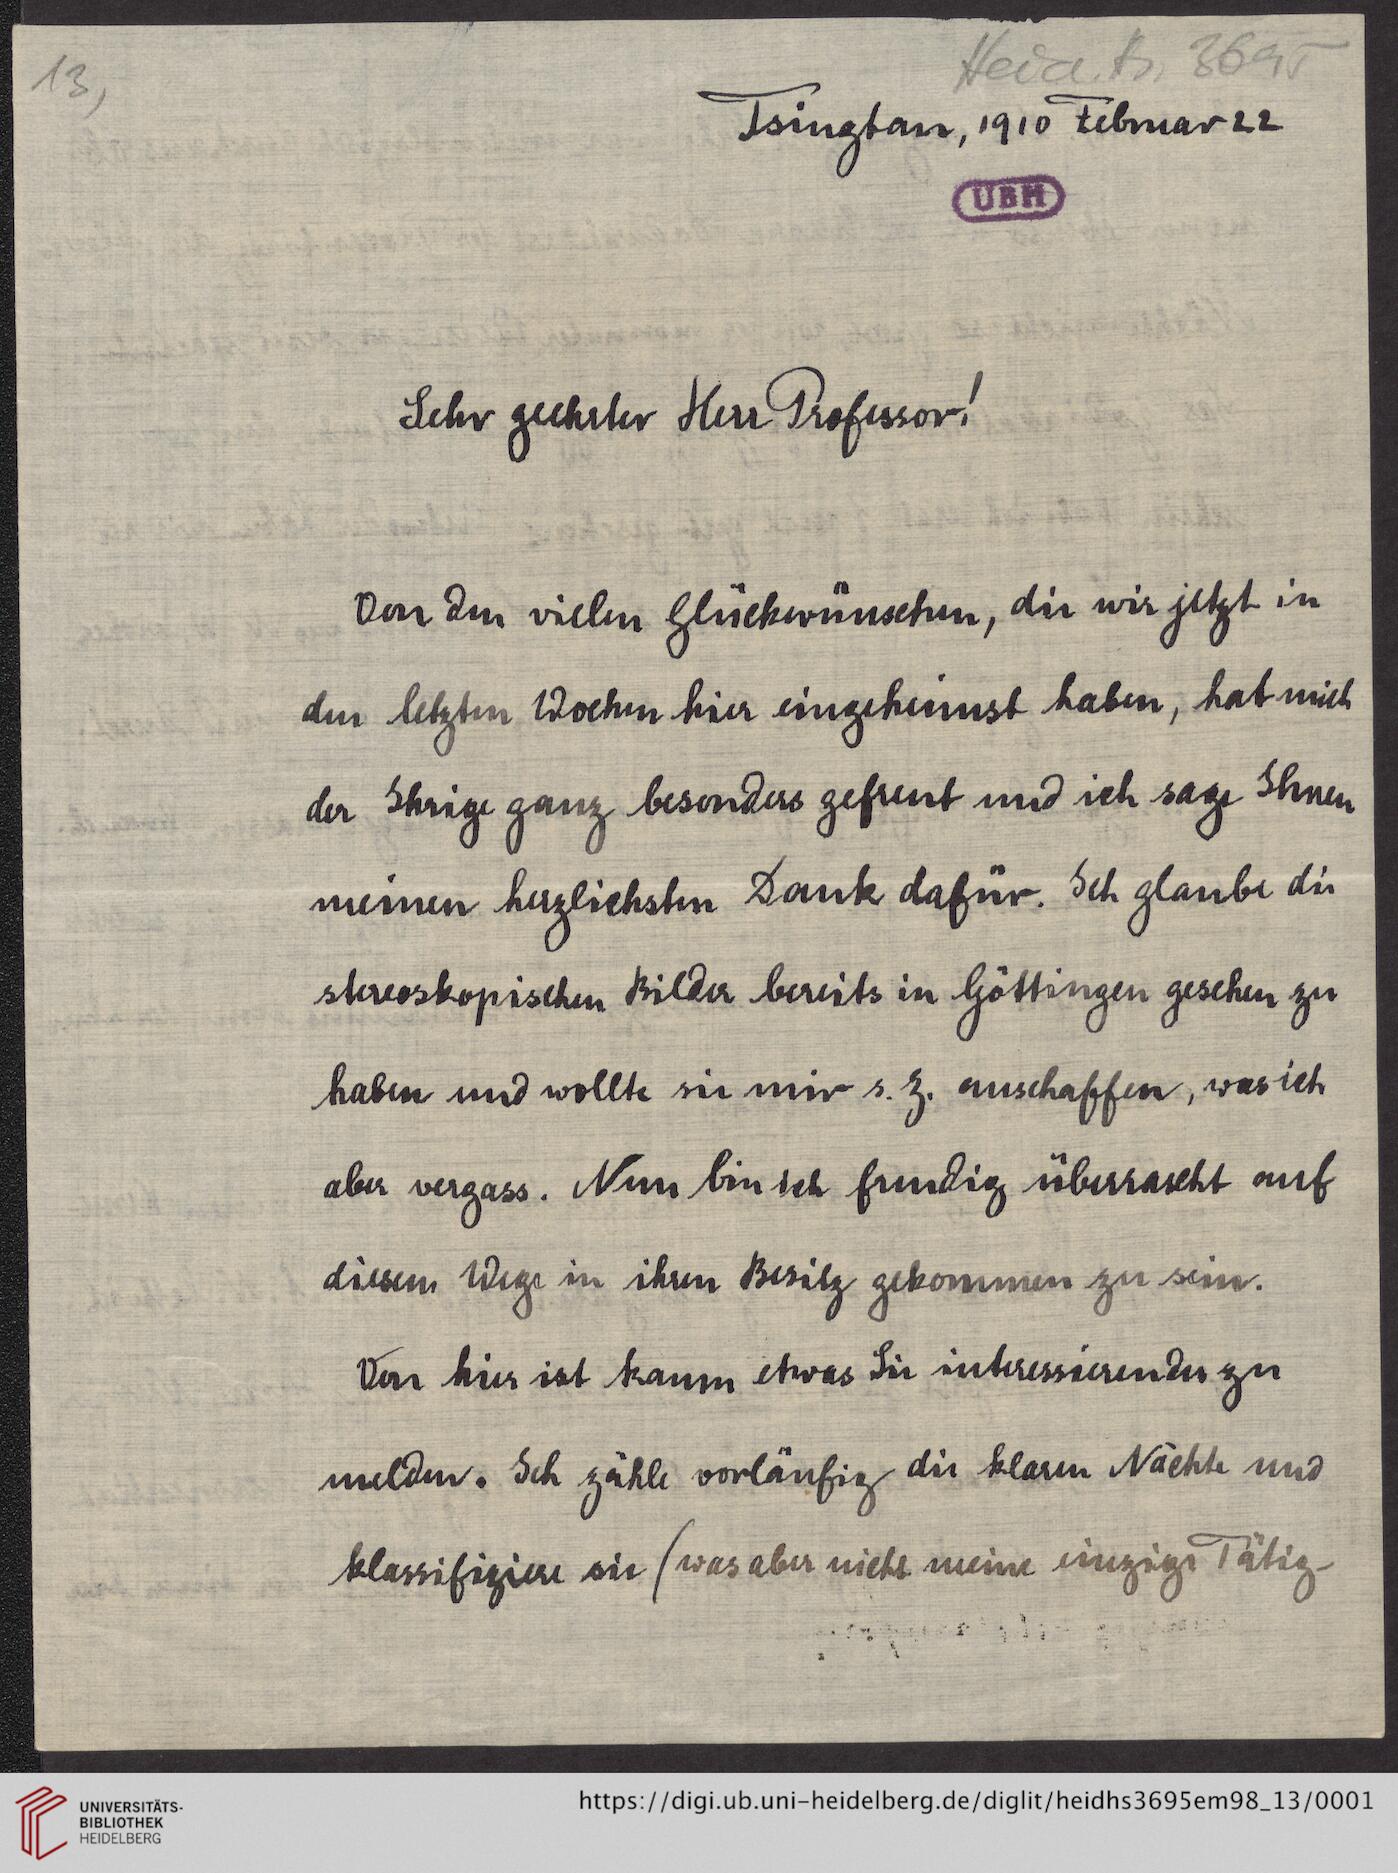 13,
Heid. Hs. 3695
Tsingtau, 1910 Februar 22
UBH
Sehr geehrter Herr Professor!
Von den vielen Glückwünschen, die wir jetzt in
den letzten Wochen hier eingeheimst haben, hat mich
der Ihrige ganz besonders gefreut und ich sage Ihnen
meinen herzlichsten Dank dafür. Ich glaube die
stereoskopischen Bilder bereits in Göttingen gesehen zu
haben und wollte sie mir s. Z. anschaffen, was ich
aber vergass. Nun bin ich freudig überrascht auf
diesem Wege in ihren Besitz gekommen zu sein.
Von hier ist kaum etwas Sie interessierendes zu
melden. Ich zähle vorläufig die klaren Nächte und
klassifiziere sie (was aber nicht meine einzige Tätig-
UNIVERSITÄTS-
BIBLIOTHEK
HEIDELBERG
https://digi.ub.uni-heidelberg.de/diglit/heidhs3695em98_13/0001